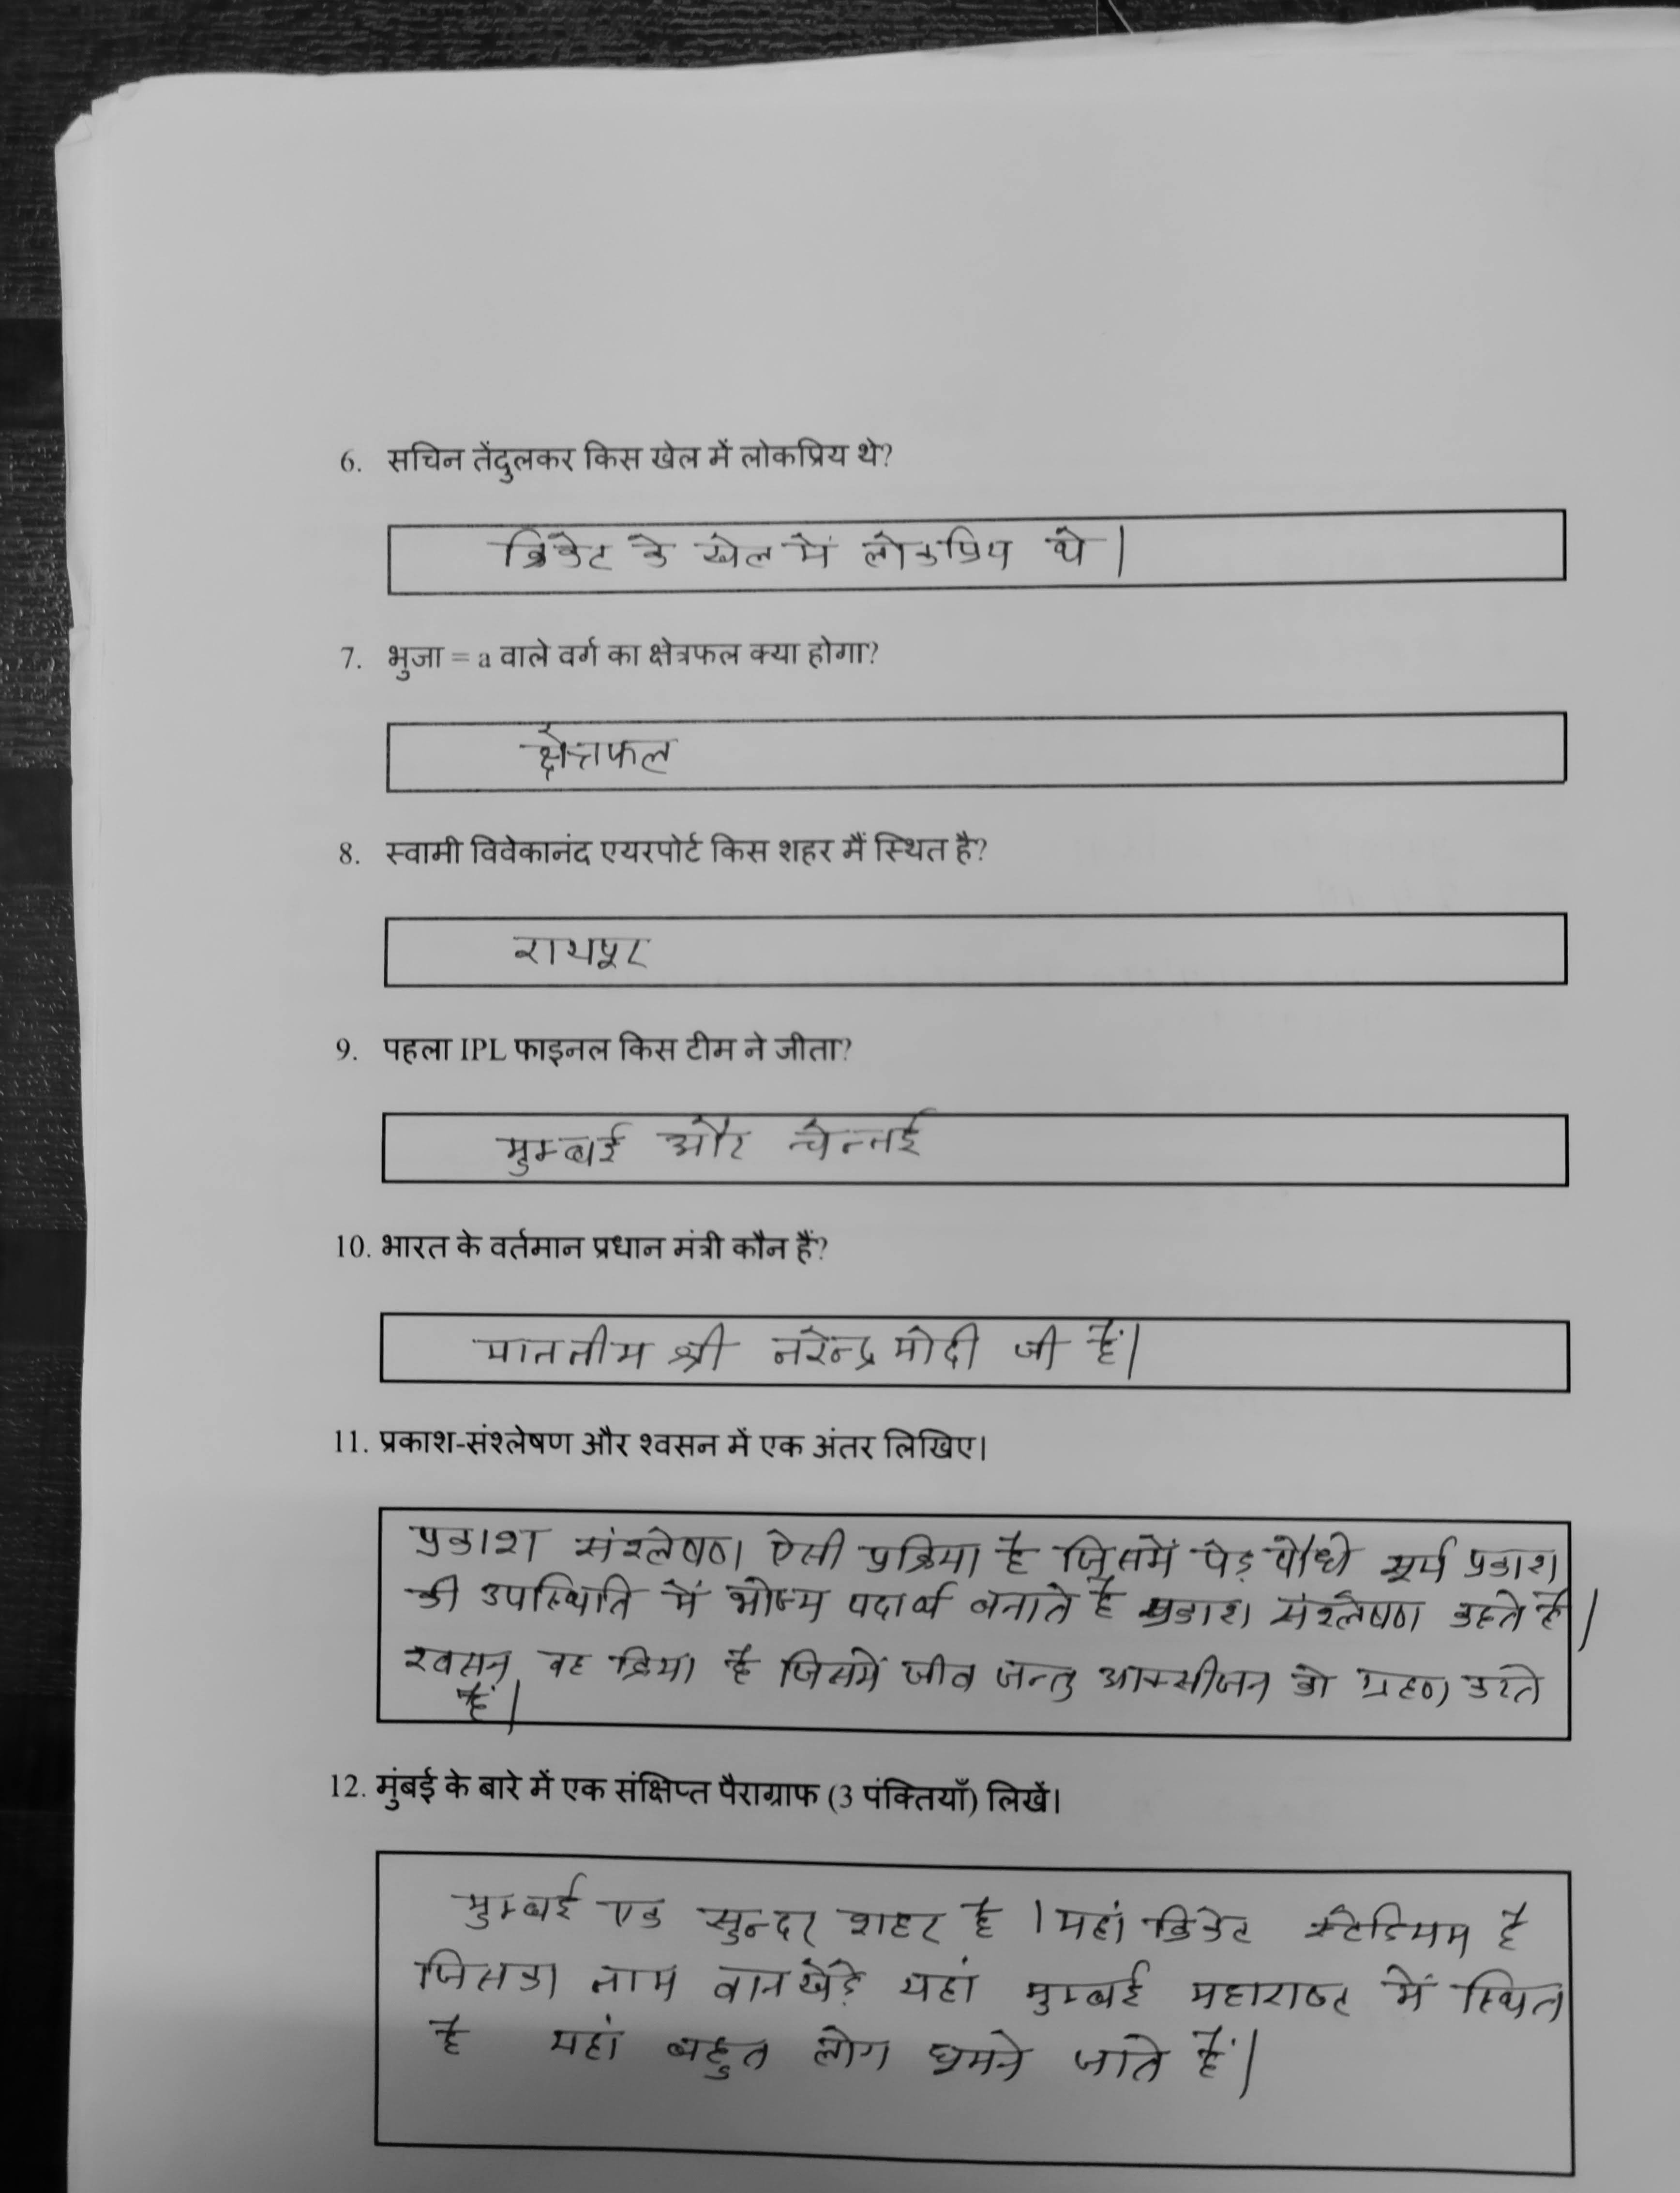 6. सचिन तेंदुलकर किस खेल में लोकप्रिय थे?
क्रिकेट के खेल में लोकप्रिय थे।
7. भुजा = a वाले वर्ग का क्षेत्रफल क्या होगा?
क्षेत्रफल
8. स्वामी विवेकानंद एयरपोर्ट किस शहर मैं स्थित है?
रायपूर
9. पहला IPL फाइनल किस टीम ने जीता?
मुम्बई और चेन्नई
10. भारत के वर्तमान प्रधान मंत्री कौन हैं?
माननीय श्री नरेन्द्र मोदी जी हैं।
11. प्रकाश-संश्लेषण और श्वसन में एक अंतर लिखिए।
प्रकाश संश्लेषण ऐसी प्रक्रिया है जिसमें पेड़ पौधे सूर्य प्रकाश
की उपस्थिति में भोज्य पदार्थ बनाते है प्रकाश संश्लेषण कहते है।
श्वसन वह क्रिया है जिसमें जीव जन्तु आक्सीजन को ग्रहण करते
हैं।
12. मुंबई के बारे में एक संक्षिप्त पैराग्राफ (3 पंक्तियाँ) लिखें।
मुम्बई एक सुन्दर शहर है । यहां क्रिकेट स्टेडियम है
जिसका नाम वानखेड़े यहां मुम्बई महाराष्ट में स्थित
है यहां बहुत लोग घुमने जाते हैं।